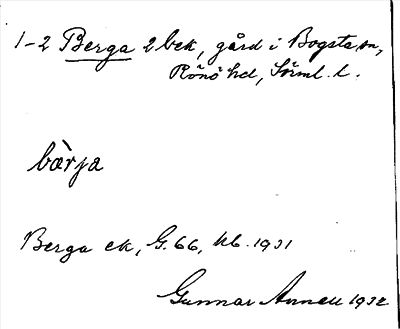 1-2 Berga 2 bek, gård i Bogsta sn,
Rönö hd, Sörml. l.
bærja
Berga ek, G.66, kb. 1931
Gunnar Annell 1932